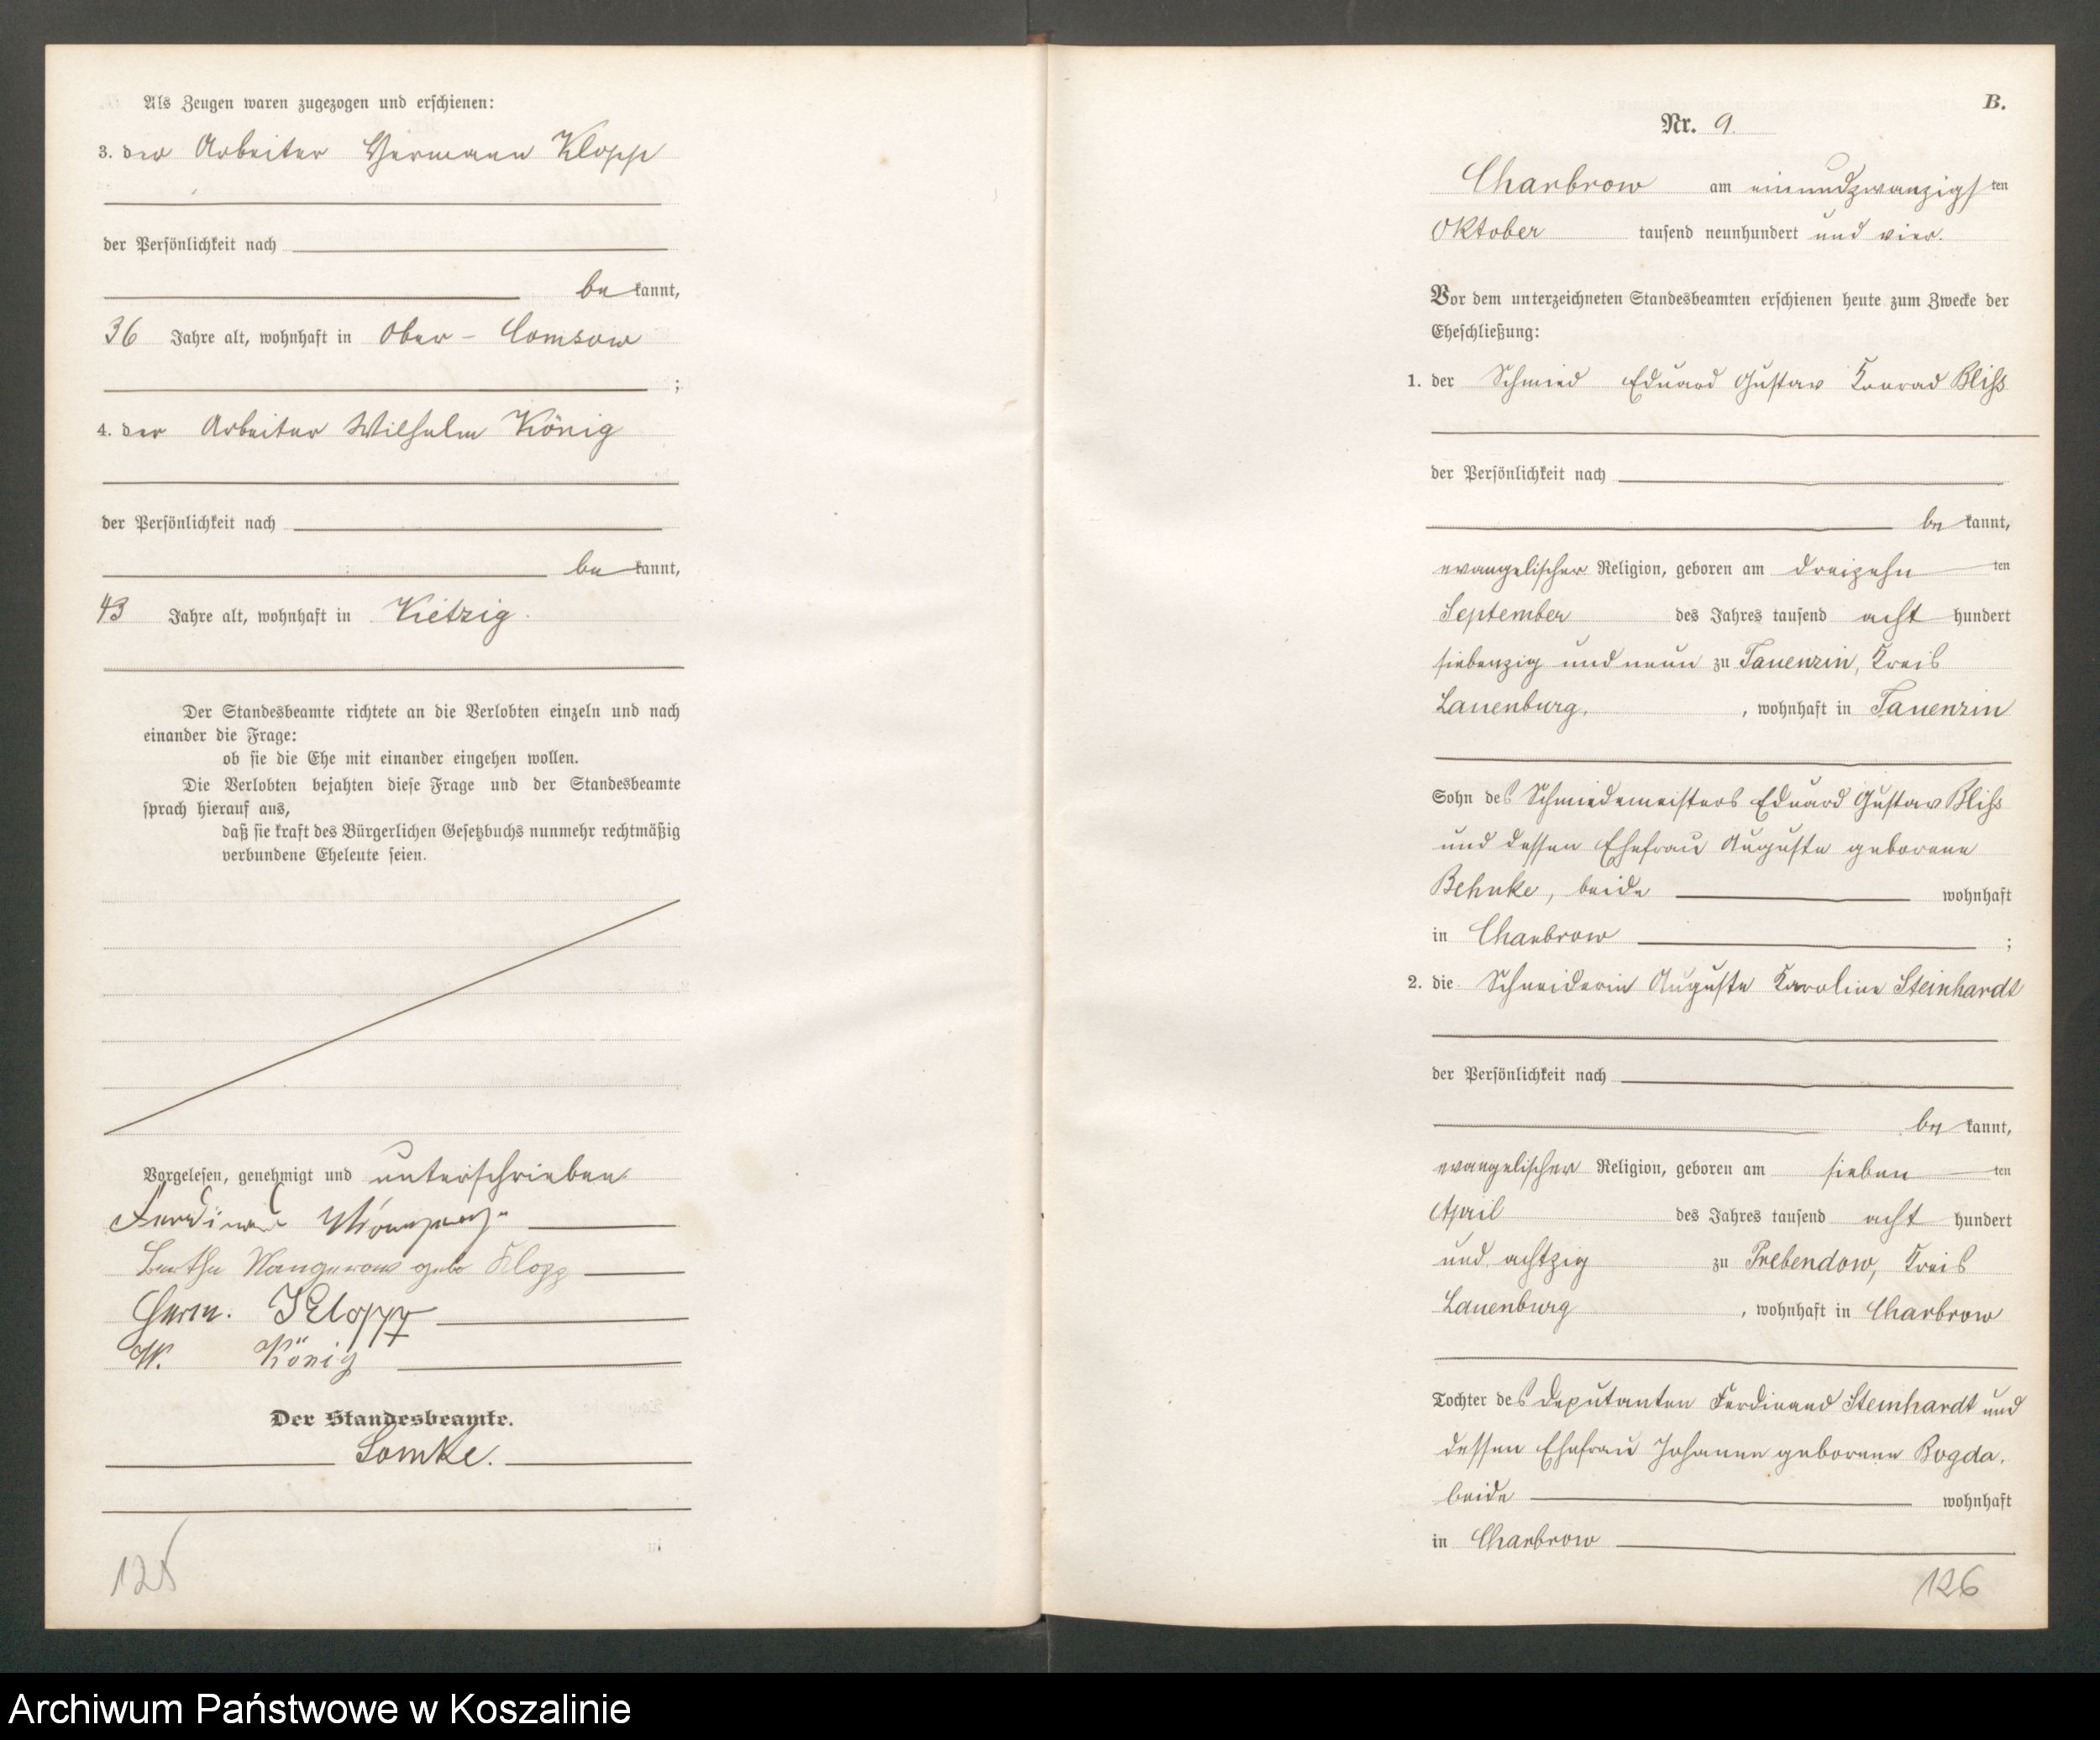 Als Zeugen waren zugezogen und erschienen:
3. der Arbeiter Hermann Klopp
der Persönlichkeit nach
be kannt,
36 Jahre alt, wohnhaft in Ober-Comsow
;
4. der Arbeiter Wilhelm König
der Persönlichkeit nach
be kannt,
43 Jahre alt, wohnhaft in Kietzig.
Der Standesbeamte richtete an die Verlobten einzeln und nach
einander die Frage:
ob sie die Ehe mit einander eingehen wollen.
Die Verlobten bejahten diese Frage und der Standesbeamte
sprach hierauf aus,
daß sie kraft des Bürgerlichen Gesetzbuchs nunmehr rechtmäßig
verbundene Eheleute seien.
Vorgelesen, genehmigt und unterschrieben
Ferdinand
Bertha geb Klopp
Herm. Klopp
W. König
Der Standesbeamte.
Lomke.
125
B.
Nr. 9.
Charbrow am einundzwanzigsten
Oktober tausend neunhundert und vier.
Vor dem unterzeichneten Standesbeamten erschienen heute zum Zwecke der
Eheschließung:
1. der Schmied Eduard Gustav Konrad Bliß
der Persönlichkeit nach
be kannt,
evangelischer Religion, geboren am dreizehn ten
September des Jahres tausend acht hundert
siebenzig und neun zu Tauenzin, Kreis
Lauenburg, , wohnhaft in Tauenzin
Sohn des Schmiedemeisters Eduard Gustav Bliß
und dessen Ehefrau Auguste geborene
Behnke, beide wohnhaft
in Charbrow ;
2. die Schneiderin Auguste Karoline Steinhardt
der Persönlichkeit nach
be kannt,
evangelischer Religion, geboren am sieben ten
April des Jahres tausend acht hundert
und achtzig zu Prebendow, Kreis
Lauenburg , wohnhaft in Charbrow
Tochter des Deputanten Ferdinand Steinhardt und
dessen Ehefrau Johanne geborene Bogda,
beide wohnhaft
in Charbrow
126
Archiwum Państwowe w Koszalinie